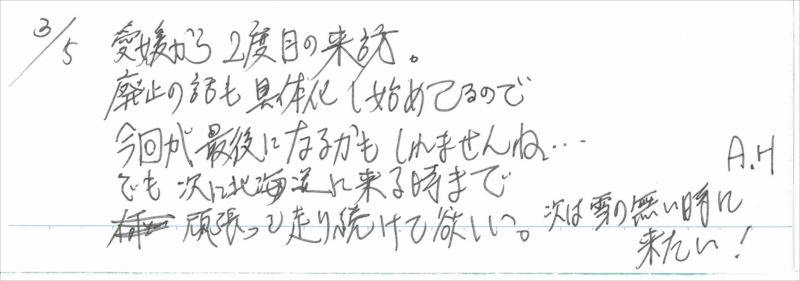 3/5 愛媛から2度目の来訪。
廃止の話も具体化し始めてるので
今回が最後になるかもしれませんね…
でも次に北海道に来る時まで
頑張って走り続けて欲しい。次は雪の無い時に
来たい!
A.H